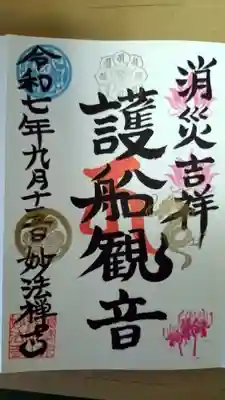 消災吉祥
護船観音
令和七年九月十一日 妙法禅寺